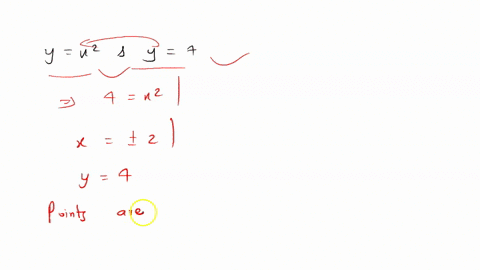 y = x² & y = 4
⇒ 4 = x²
x = ± 2
y = 4
Points are